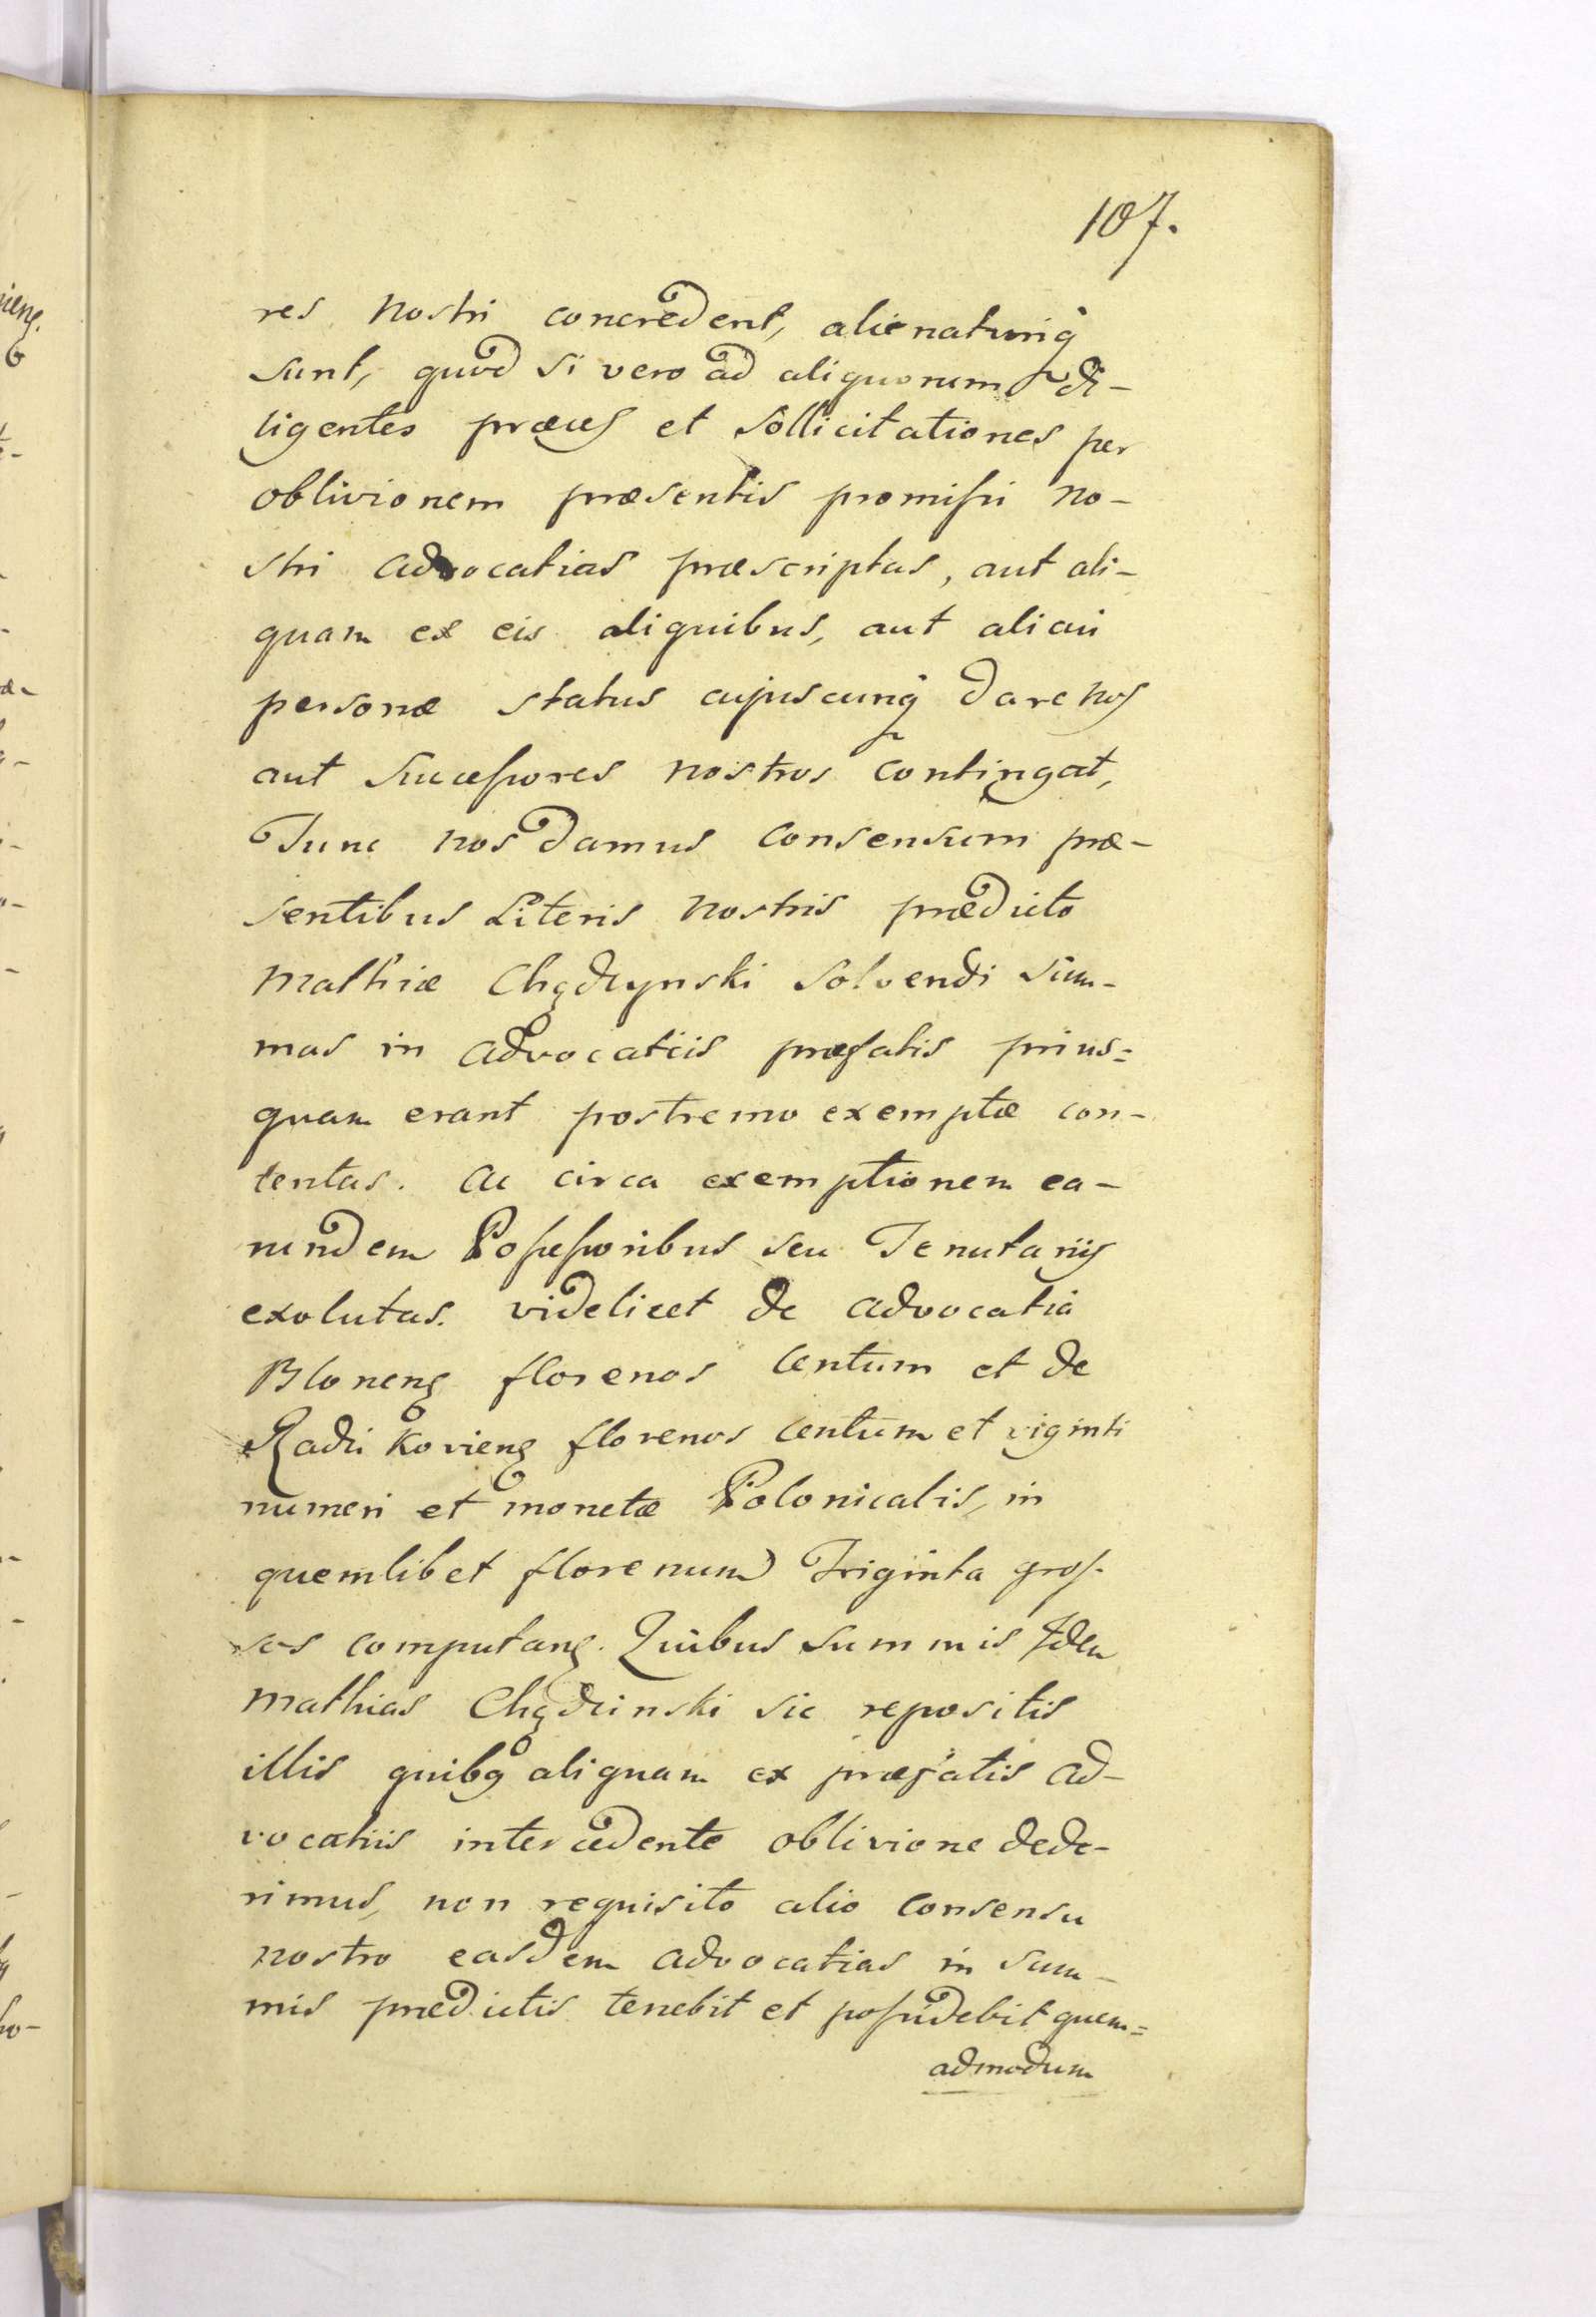 107.
res nostri concredent, alienaturiq
sunt, quod si vero ad aliquorum di-
ligentes præces et sollicitationes per
oblivionem præsentis promissi no-
stri advocatias præscriptas, aut ali-
quam ex eis aliquibus, aut alicui
personæ status cujuscunq dare nos
aut successores nostros contingat,
Tunc nos damus consensum præ-
sentibus Literis nostris prædicto
Mathiæ Chądzynski solvendi sum-
mas in advocatiis præfatis prius=
quam erant postremo exemptæ con-
tentas. ac circa exemptionem ea-
rundem Possessoribus seu Tenutarijs
exolutas. videlicet de advocatia
Bloneng florenos centum et de
Radzikovieng florenos centum et viginti
numeri et monetæ Polonicalis, in
quemlibet florenum Triginta gros-
sos computang. Quibus summis Idem
Mathias Chądzinski sic repositis
illis quibq aliquam ex præfatis ad-
vocatiis intercedente oblivione dede-
rimus, non requisito alio consensu
nostro easdem advocatias in sum-
mis prædictis tenebit et possidebit quem=
admodum